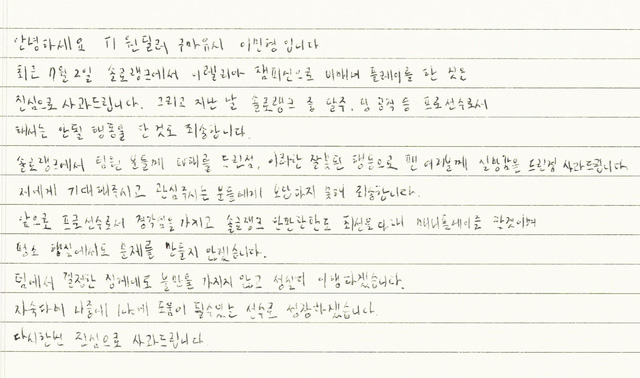 안녕하세요 T1 원딜러 구마유시 이민형 입니다
최근 7월 2일 솔로랭크에서 이렐리아 챔피언으로 비매너 플레이를 한 것은
진심으로 사과드립니다. 그리고 지난 날 솔로랭크 중 탈주, 팀 공격 등 프로선수로서
해서는 안될 행동을 한 것도 죄송합니다.
솔로랭크에서 팀원 분들께 피해를 드린점, 이러한 잘못된 행동으로 팬 여러분께 실망감을 드린점 사과드립니다.
저에게 기대해주시고 관심주시는 분들에게 보답하지 못해 죄송합니다.
앞으로 프로선수로서 경각심을 가지고 솔로랭크 한판한판도 최선을 다해 매너플레이를 할것이며
평소 행실에서도 문제를 만들지 않겠습니다.
팀에서 결정한 징계에도 불만을 가지지 않고 성실히 이행하겠습니다.
자숙하며 나중에 도움이 될수있는 선수로 성장하겠습니다.
다시한번 진심으로 사과드립니다